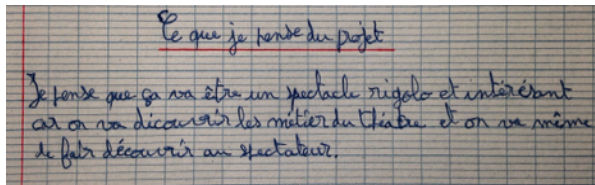 Ce que je pense du projet
Je pense que ça va être un spectacle rigolo et intérésant
car on va dicouvrir les métier du théatre et on va même
le fair découvrir au spectateur.